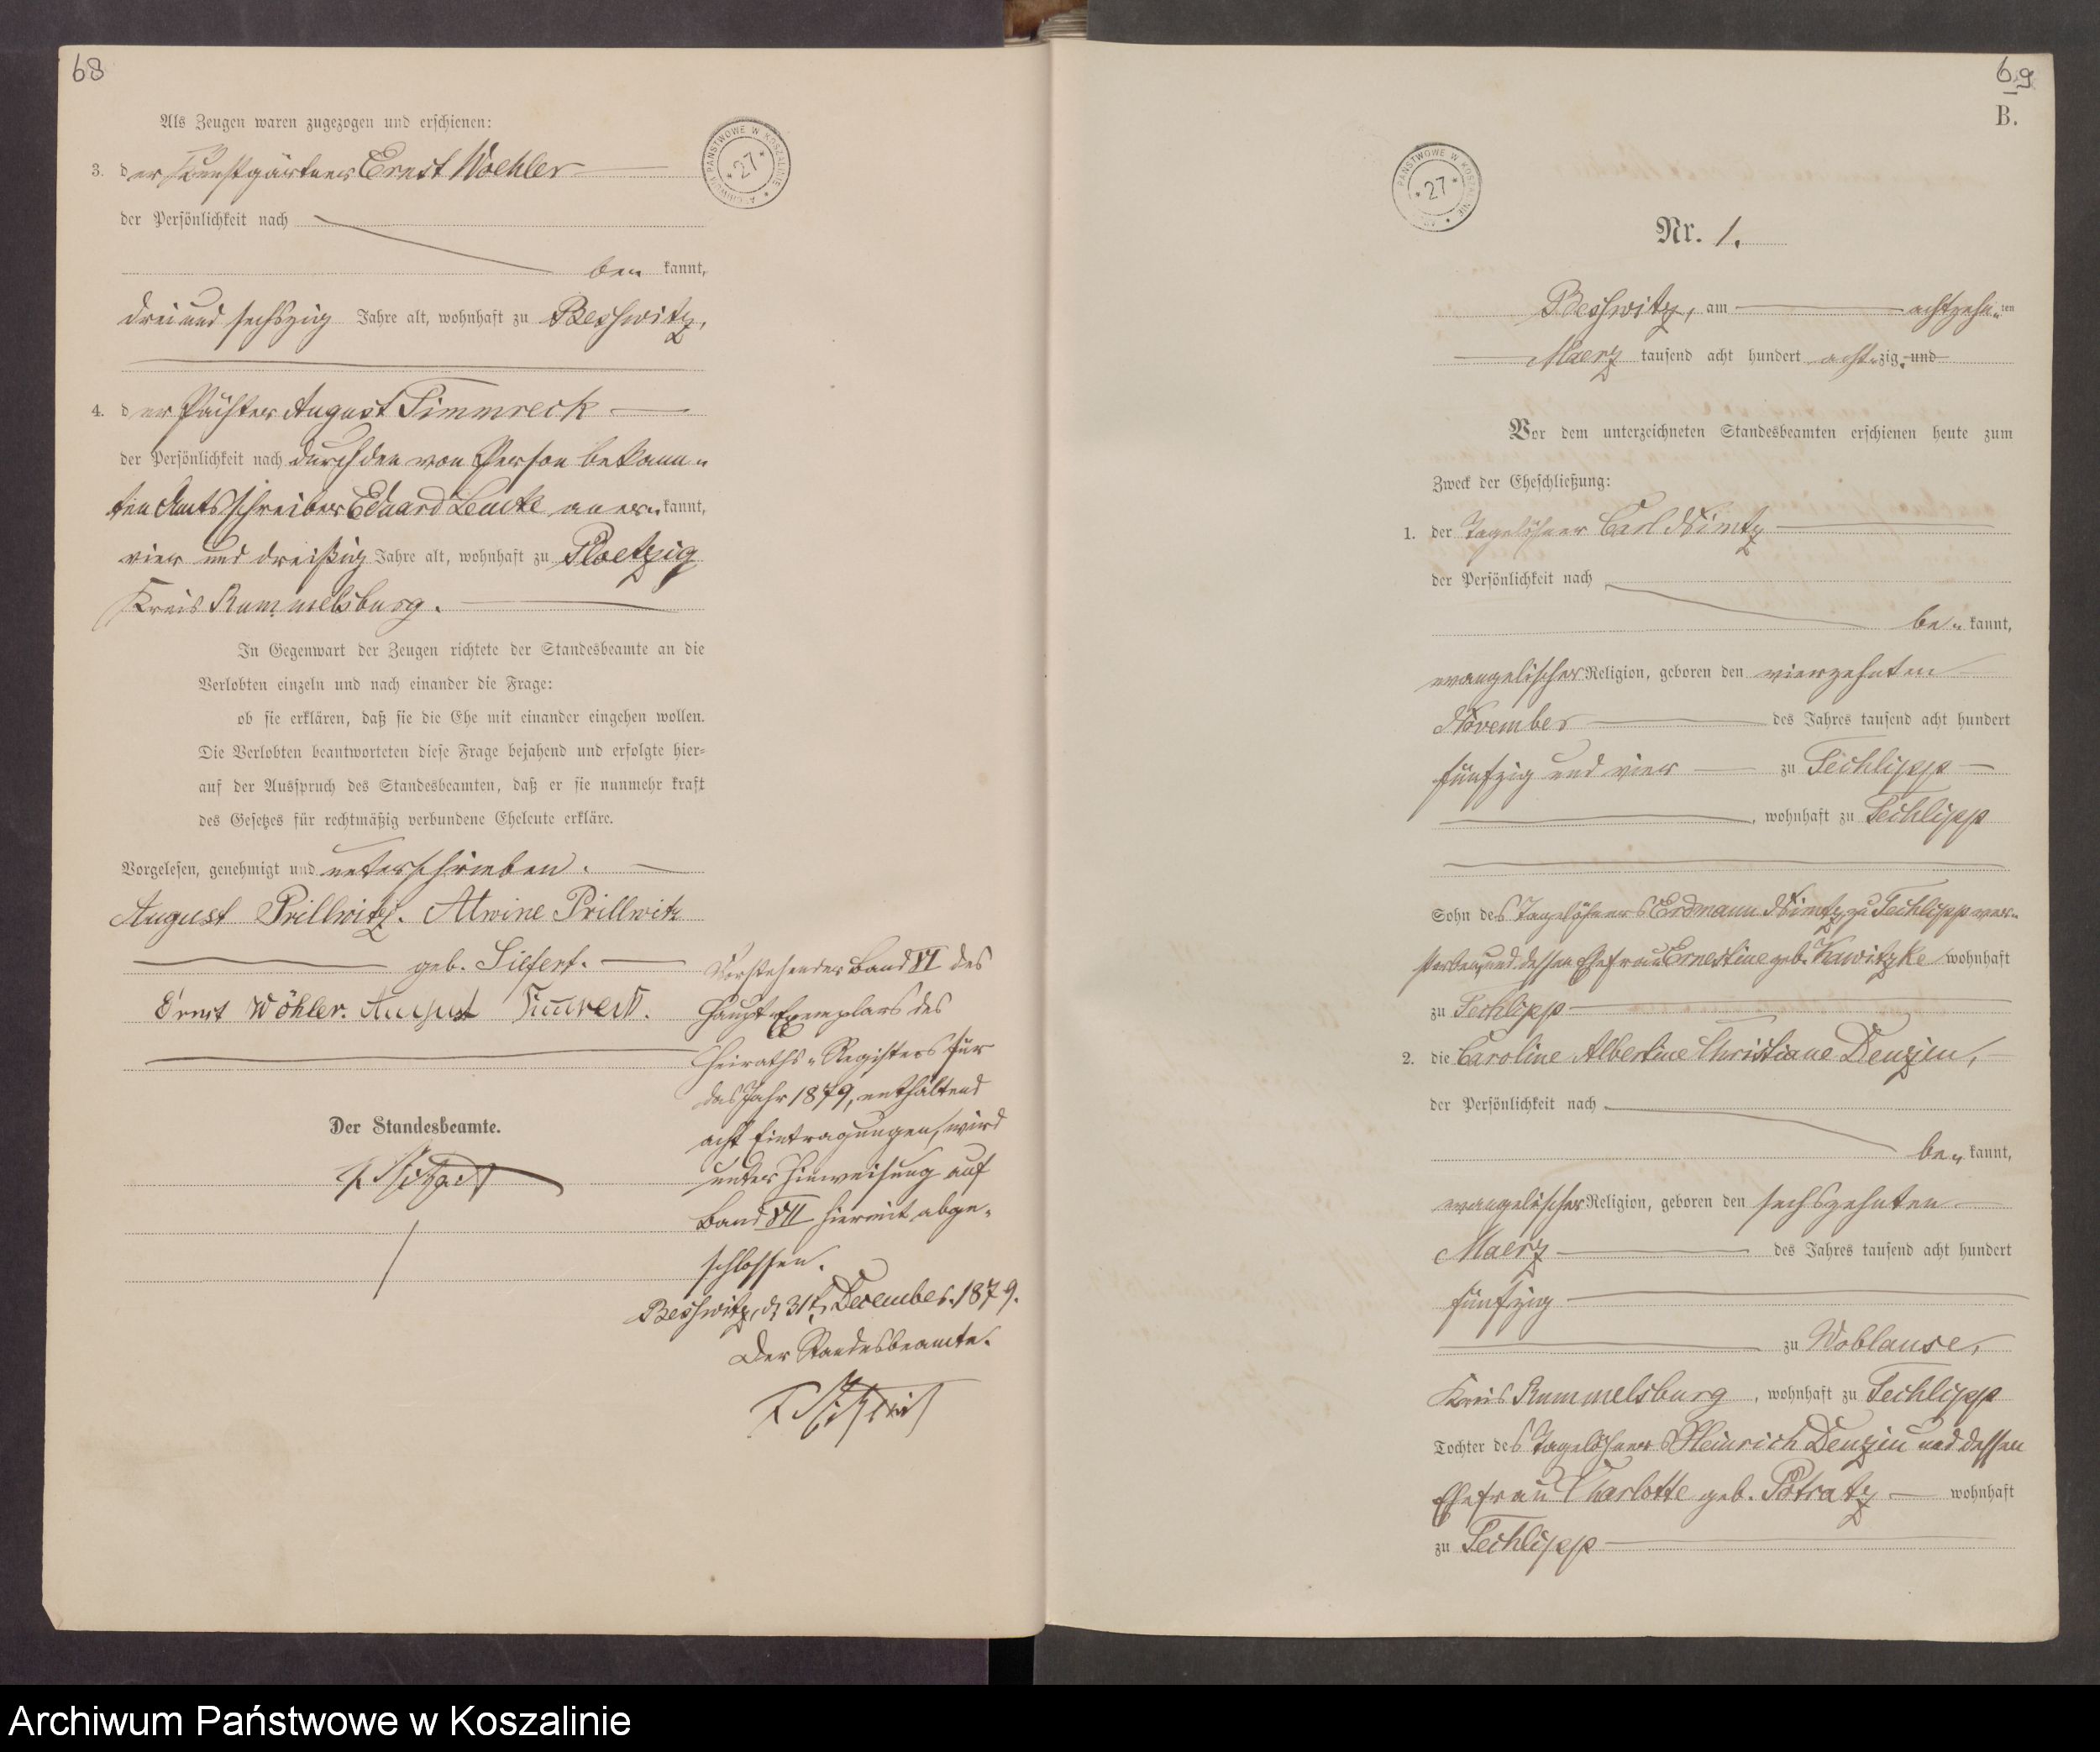 68
Als Zeugen waren zugezogen und erschienen:
3. der Kunstgärtner Ernst Woehler
der Persönlichkeit nach
be„ kannt,
drei und sechszig Jahre alt, wohnhaft zu Besswitz,
4. der Pächter August Timmreck
der Persönlichkeit nach durch den von Person bekann„
ten Amtsschreiber Eduard Lemke aner„kannt,
vier und dreißig Jahre alt, wohnhaft zu Ploetzig
Kreis Rummelsburg.
In Gegenwart der Zeugen richtete der Standesbeamte an die
Verlobten einzeln und nach einander die Frage:
ob sie erklären, daß sie die Ehe mit einander eingehen wollen.
Die Verlobten beantworteten diese Frage bejahend und erfolgte hier=
auf der Ausspruch des Standesbeamten, daß er sie nunmehr kraft
des Gesetzes für rechtmäßig verbundene Eheleute erkläre.
Vorgelesen, genehmigt und unterschrieben.
August Prillwitz. Alwine Prillwitz
geb. Siefert.
Ernst Wöhler. August Timreck.
Der Standesbeamte.
Vorstehender Band VI des
Haupt-Exemplars des
Heiraths-Registers für
das Jahr 1879, enthaltend
acht Eintragungen, wird
unter Hinweisung auf
Band VII hiermit abge„
schlossen.
Besswitz, d. 31t December 1879.
Der Standesbeamte.
ARCHIWUM PAŃSTWOWE W KOSZALINIE
* 27 *
69
B.
PAŃSTWOWE W KOSZALINIE
* 27 *
Nr. 1.
Besswitz, am achtzehn„ten
Maerz tausend acht hundert acht„zig und
Vor dem unterzeichneten Standesbeamten erschienen heute zum
Zweck der Eheschließung:
1. der Tagelöhner Carl Nimtz
der Persönlichkeit nach
be„ kannt,
evangelischer Religion, geboren den vierzehnten
November des Jahres tausend acht hundert
fünfzig und vier zu Techlipp
, wohnhaft zu Techlipp
Sohn des Tagelöhners Erdmann Nimtz, zu Techlipp ver„
storben, und dessen Ehefrau Ernestine geb. Kawitzke wohnhaft
zu Techlipp
2. die Caroline Albertine Christiane Denzin,
der Persönlichkeit nach
be„ kannt,
evangelischer Religion, geboren den sechszehnten
Maerz des Jahres tausend acht hundert
fünfzig
zu Woblanse,
Kreis Rummelsburg, wohnhaft zu Techlipp
Tochter des Tagelöhners Heinrich Denzin und dessen
Ehefrau Charlotte geb. Potratz wohnhaft
zu Techlipp
Archiwum Państwowe w Koszalinie